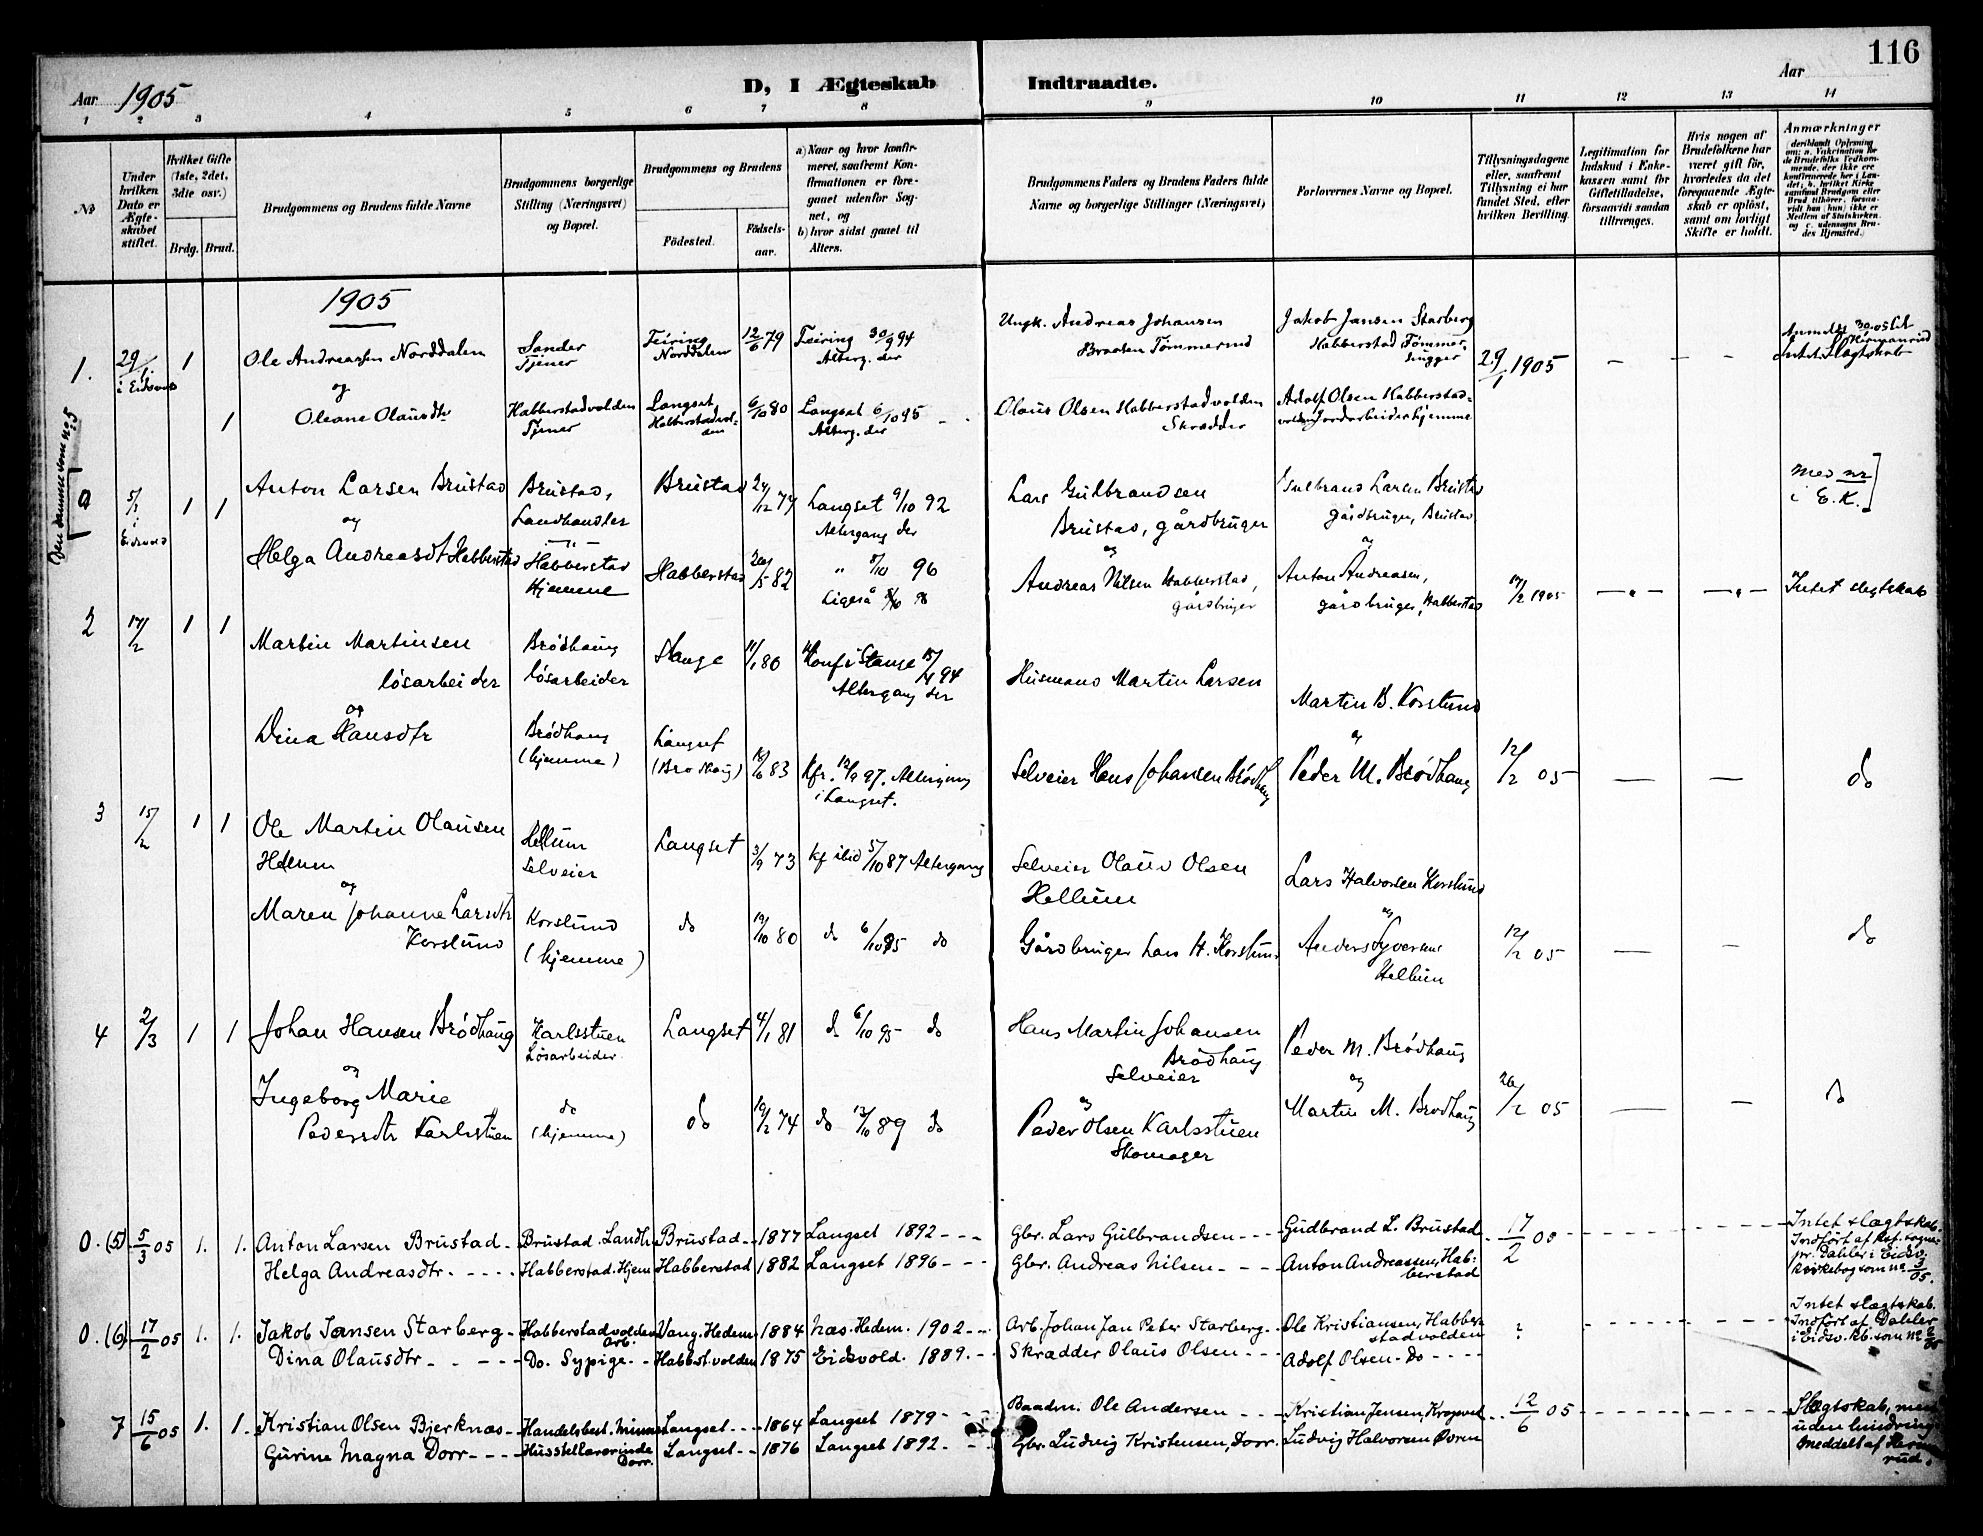 116
Aar 1905
D, I Ægteskab Indtraadte.
Aar
1 2 3 4 5 6 7 8 9 10 11 12 13 14
No
Under hvilken Dato er Ægteskabet stiftet.
Hvilket Gifte (1ste, 2det, 3die osv.)
Brdg. Brud.
Brudgommens og Brudens fulde Navne
Brudgommens borgerlige Stilling (Næringsvei) og Bopæl.
Brudgommens og Brudens
Födested. Födselsaar.
a) Naar og hvor konfirmeret, saafremt Konfirmationen er foregaaet udenfor Sognet, og
b) hvor sidst gaaet til Alters.
Brudgommens Faders og Brudens Faders fulde Navne og borgerlige Stillinger (Næringsvei)
Forlovernes Navne og Bopæl.
Tillysningsdagene eller, saafremt Tillysning ei har fundet Sted, efter hvilken Bevilling.
Legitimation for Indskud i Enkekassen samt for Giftetilladelse, forsaavidt saadan tiltrænges.
Hvis nogen af Brudefolkene har været gift för, hvorledes da det foregaaende Ægteskab er oplöst, samt om lovligt Skifte er holdt.
Anmærkninger
1905
1. 29/1 i Eidsvold 1 Ole Andreassen Norddalen Sander Tjener Feiring Norddalen 12/6 79 Feiring 30/9 94 Alterg. der Ungk. Andreas Johansen Braaten Tømmerud Jakob Jansen Starberg Habberstad Tømmerhugger 29/1 1905 – – Intet Slægtskab
og
1 Oleane Olausdtr Habberstadvolden Tjener Langset Habberstadvolden 6/10 80 Langset 6/10 95 Alterg. der Olaus Olsen Habberstadvolden Skrædder Adolf Olsen Habberstadvolden Jordarbeider hjemme
Den samme som no 5
0 5/3 i Eidsvold 1 1 Anton Larsen Brustad Brustad, Landhandler Brustad 24/12 77 Langset 9/10 92 Altergang der Lars Gulbrandsen Brustad, gårdbruger Gulbrand Larsen Brustad gårdbruger, Brustad med nr i E.K.]
og
Helga Andreasdt Habberstad Habberstad Hjemme Habberstad 20/5 82 " 8/10 96 Ligeså Andreas Nilsen Habberstad, gårdbruger Anton Andreasen, gårdbruger, Habberstad 17/2 1905 Intet slegtskab
2 17/2 1 1 Martin Martinsen løsarbeider Brødhaug løsarbeider Stange 11/1 80 Konf i Stange 94 Altergang der Husmand Martin Larsen Martin B. Korslund
og
Dina Hansdtr Brødhaug (hjemme) Langset (Brødhaug) 83 Kfr. 12/9 97. Altergang i Langset. Selveier Hans Johansen Brødhaug Peder M. Brødhaug 12/2 05 — — do
3 15/2 1 1 Ole Martin Olausen Hellum Hellum Selveier Langset 3/9 73 kf ibid 5/10 87 Altergang Selveier Olaus Olsen Hellum Lars Halvorsen Korslund
og
Maren Johanne Larsdtr Korslund Korslund (hjemme) do 19/10 80 do 6/10 95 do Gårdbruger Lars H. Korslund Anders Syversen Hellum 12/2 05 — — do
4 2/3 1 1 Johan Hansen Brødhaug Karlsstuen Løsarbeider Langset 4/1 81 do 6/10 95 do Hans Martin Johansen Brødhaug Selveier Peder M. Brødhaug
og
Ingeborg Marie Pedersdtr Karlsstuen do (hjemme) do 19/2 74 do 13/10 89 do Peder Olsen Karlsstuen Skomager Martin M. Brødhaug 26/2 05 — — do
0. (5) 5/3 05 1. 1. Anton Larsen Brustad Brustad. Landh. Brustad 1877 Langset 1892 Gbr. Lars Gulbrandsen Gudbrand L. Brustad 17/2 05 Intet slægtskab. Indført af Kaf. sognepr. Dahler i Eidsv. kirkebog som no 3/05.
Helga Andreasdtr. Habberstad. Hjem Habberstad 1882 Langset 1896 Gbr. Andreas Nilsen Anton Andreassen, Habberstad
0. (6) 17/2 05 1. 1. Jakob Jansen Starberg Habberstadvolden Arb. Vang. Hedem. 1884 Næs. Hedem. 1902 Arb. Johan Jan Peter Starberg Ole Kristiansen, Habberstadvolden ? Intet slægtskab. Indført af Dahler i Eidsv. kb. som no 2/05
Dina Olausdtr Do. Sypige. Habbst. volden 1875 Eidsvold. 1889. Skrædder Olaus Olsen Adolf Olsen. do
7 15/6 05 1. 1. Kristian Olsen Bjerknæs Handelsbest. Minne Langset 1864 Langset 1879 Baadm. Ole Andersen Kristian Jensen, Kropvel 12/6 05 Slægtskab, men uden hindring meddelt af
Gurine Magna Dorr Husstellærerinde Dorr. Langset 1876 Langset 1892. Gbr. Ludvig Kristensen, Dorr. Ludvig Halvorsen Øvren